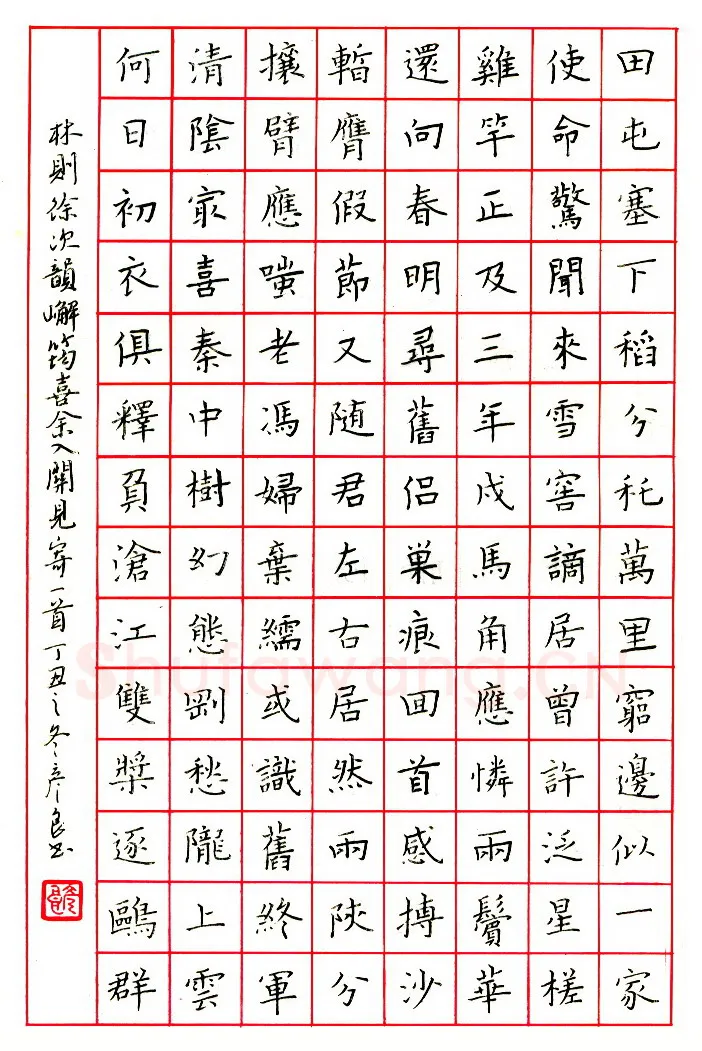 田屯塞下稻分秅萬里窮邊似一家
使命驚聞來雪窖謫居曾許泛星槎
雞竿正及三年戍馬角應憐兩鬢華
還向春明尋舊侣巢痕囬首感搏沙
暫膺假節又随君左右居然兩陝分
攘臂應嗤老馮婦棄繻或識舊終軍
清陰冣喜秦中樹幻態剛愁隴上雲
何日初衣俱釋負滄江雙槳逐鷗群
林則徐次韻嶰筠喜余入關見寄一首丁丑之冬彦良书
Shufawang.CN